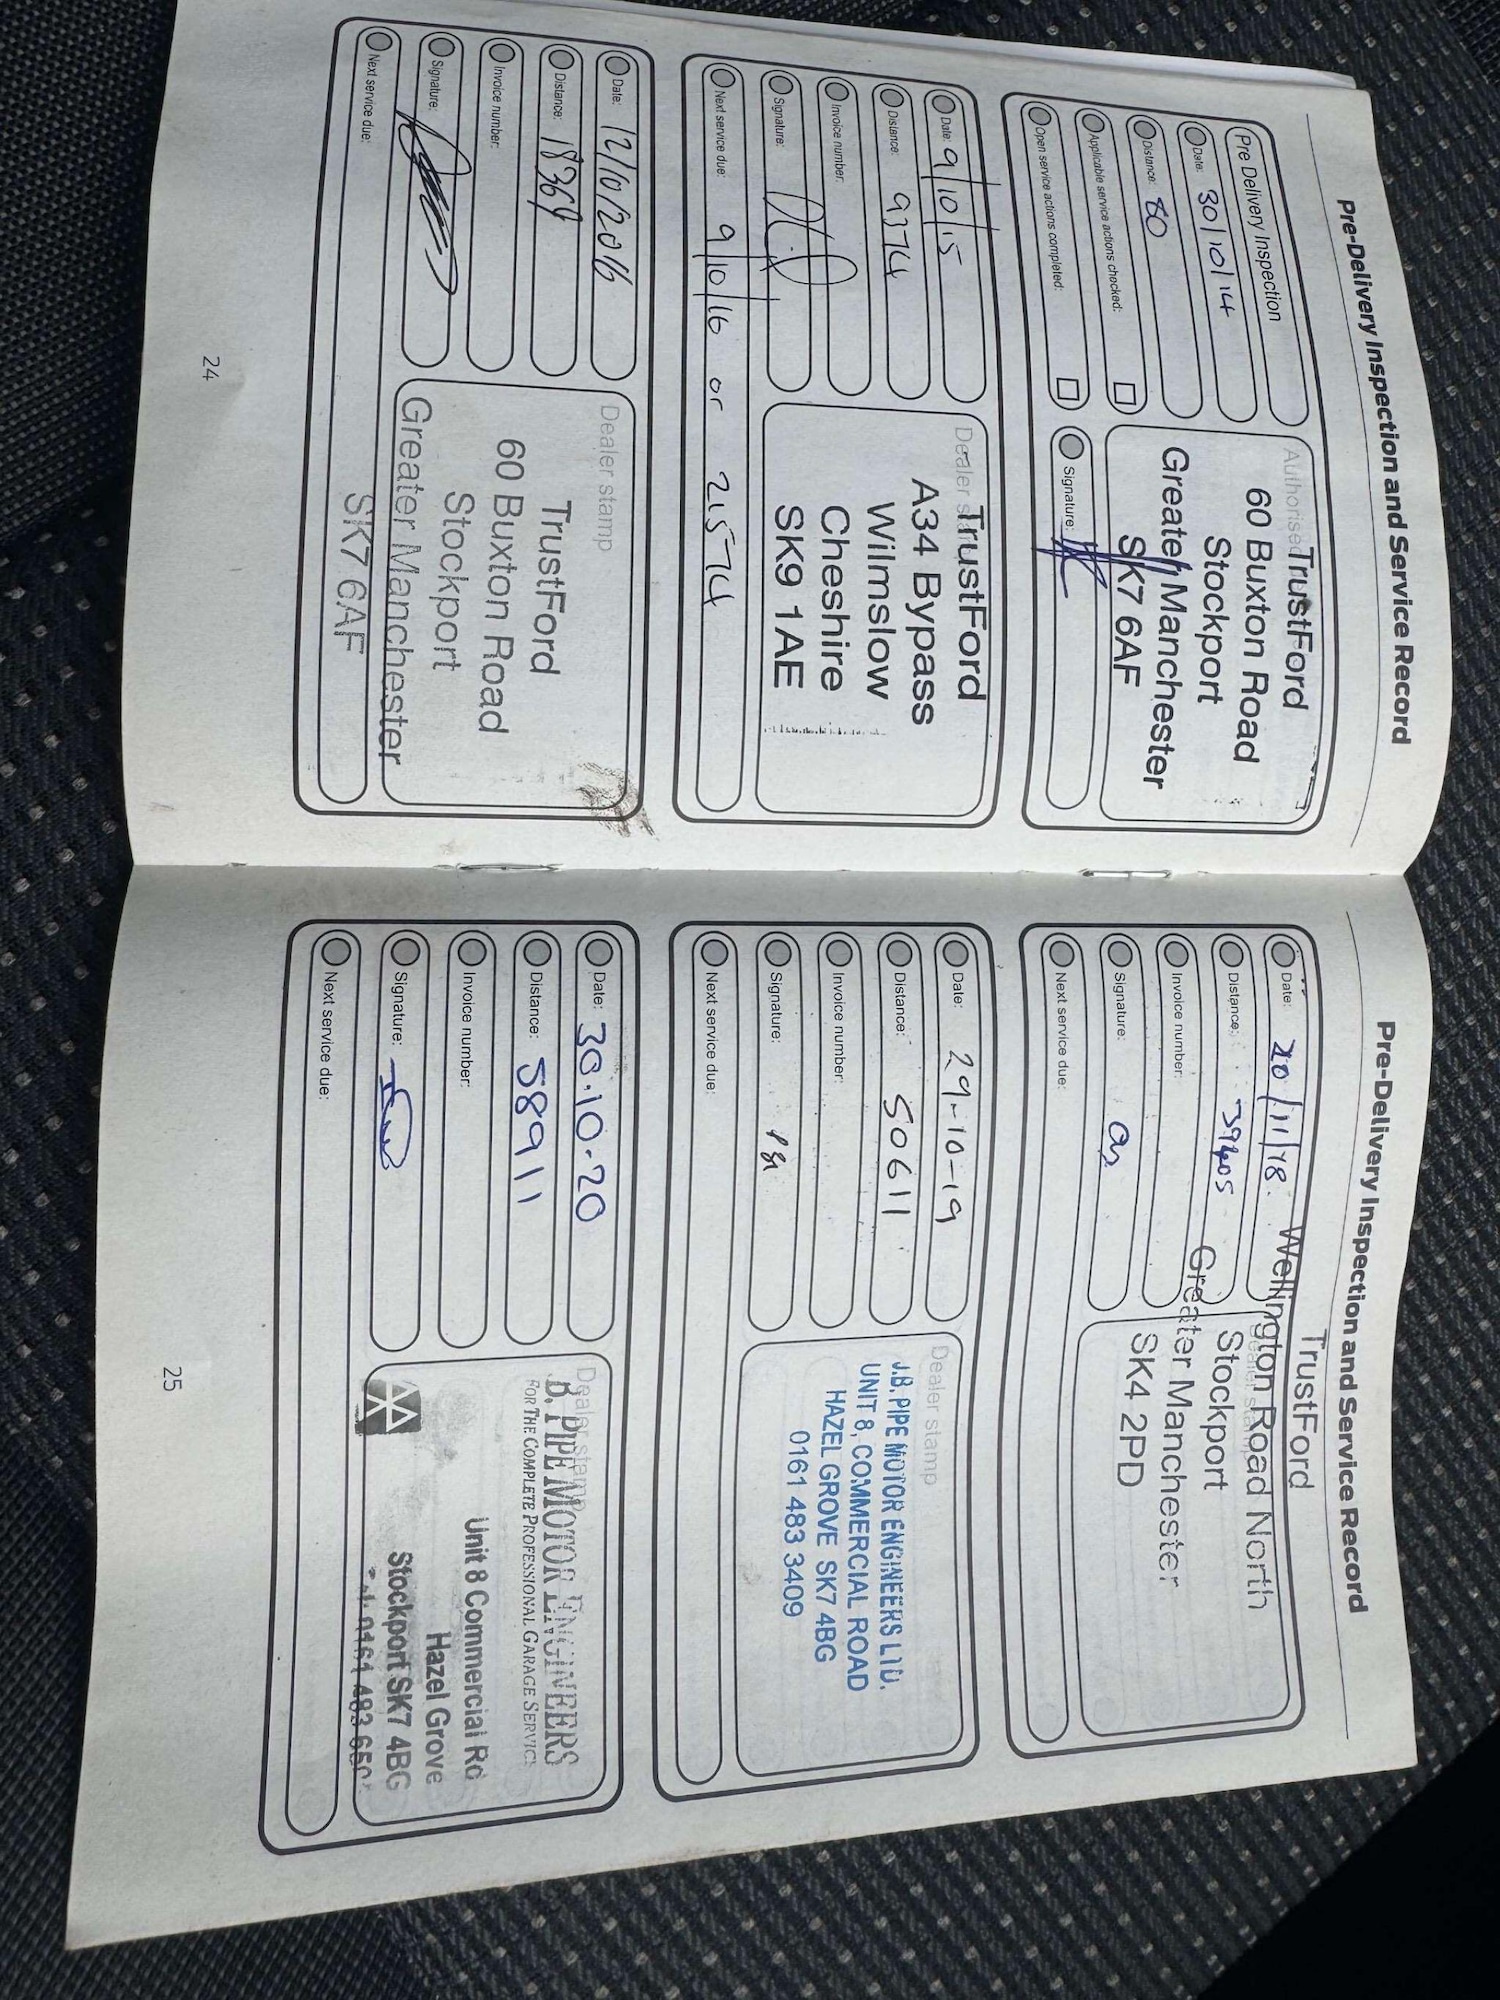 Pre-Delivery Inspection and Service Record
Pre Delivery Inspection
Date: 30/10/14
Distance: 80
Applicable service actions checked:
Open service actions completed:
Authorised
TrustFord
60 Buxton Road
Stockport
Greater Manchester
SK7 6AF
Signature:
Date: 9/10/15
Distance: 9374
Invoice number:
Signature:
Next service due: 9/10/16 or 21574
Dealer
TrustFord
A34 Bypass
Wilmslow
Cheshire
SK9 1AE
Date: 12/10/2016
Distance: 18369
Invoice number:
Signature:
Next service due:
Dealer stamp
TrustFord
60 Buxton Road
Stockport
Greater Manchester
SK7 6AF
24
Pre-Delivery Inspection and Service Record
Date: 20/11/18
Distance: 39405
Invoice number:
Signature:
Next service due:
TrustFord
Wellington Road North
Stockport
Greater Manchester
SK4 2PD
Date: 29-10-19
Distance: 50611
Invoice number:
Signature:
Next service due:
Dealer stamp
J.B. PIPE MOTOR ENGINEERS LTD.
UNIT 8, COMMERCIAL ROAD
HAZEL GROVE SK7 4BG
0161 483 3409
Date: 30.10.20
Distance: 58911
Invoice number:
Signature:
Next service due:
Dealer stamp
B. PIPE MOTOR ENGINEERS
FOR THE COMPLETE PROFESSIONAL GARAGE SERVICE
Unit 8 Commercial Rd
Hazel Grove
Stockport SK7 4BG
0161 483
25